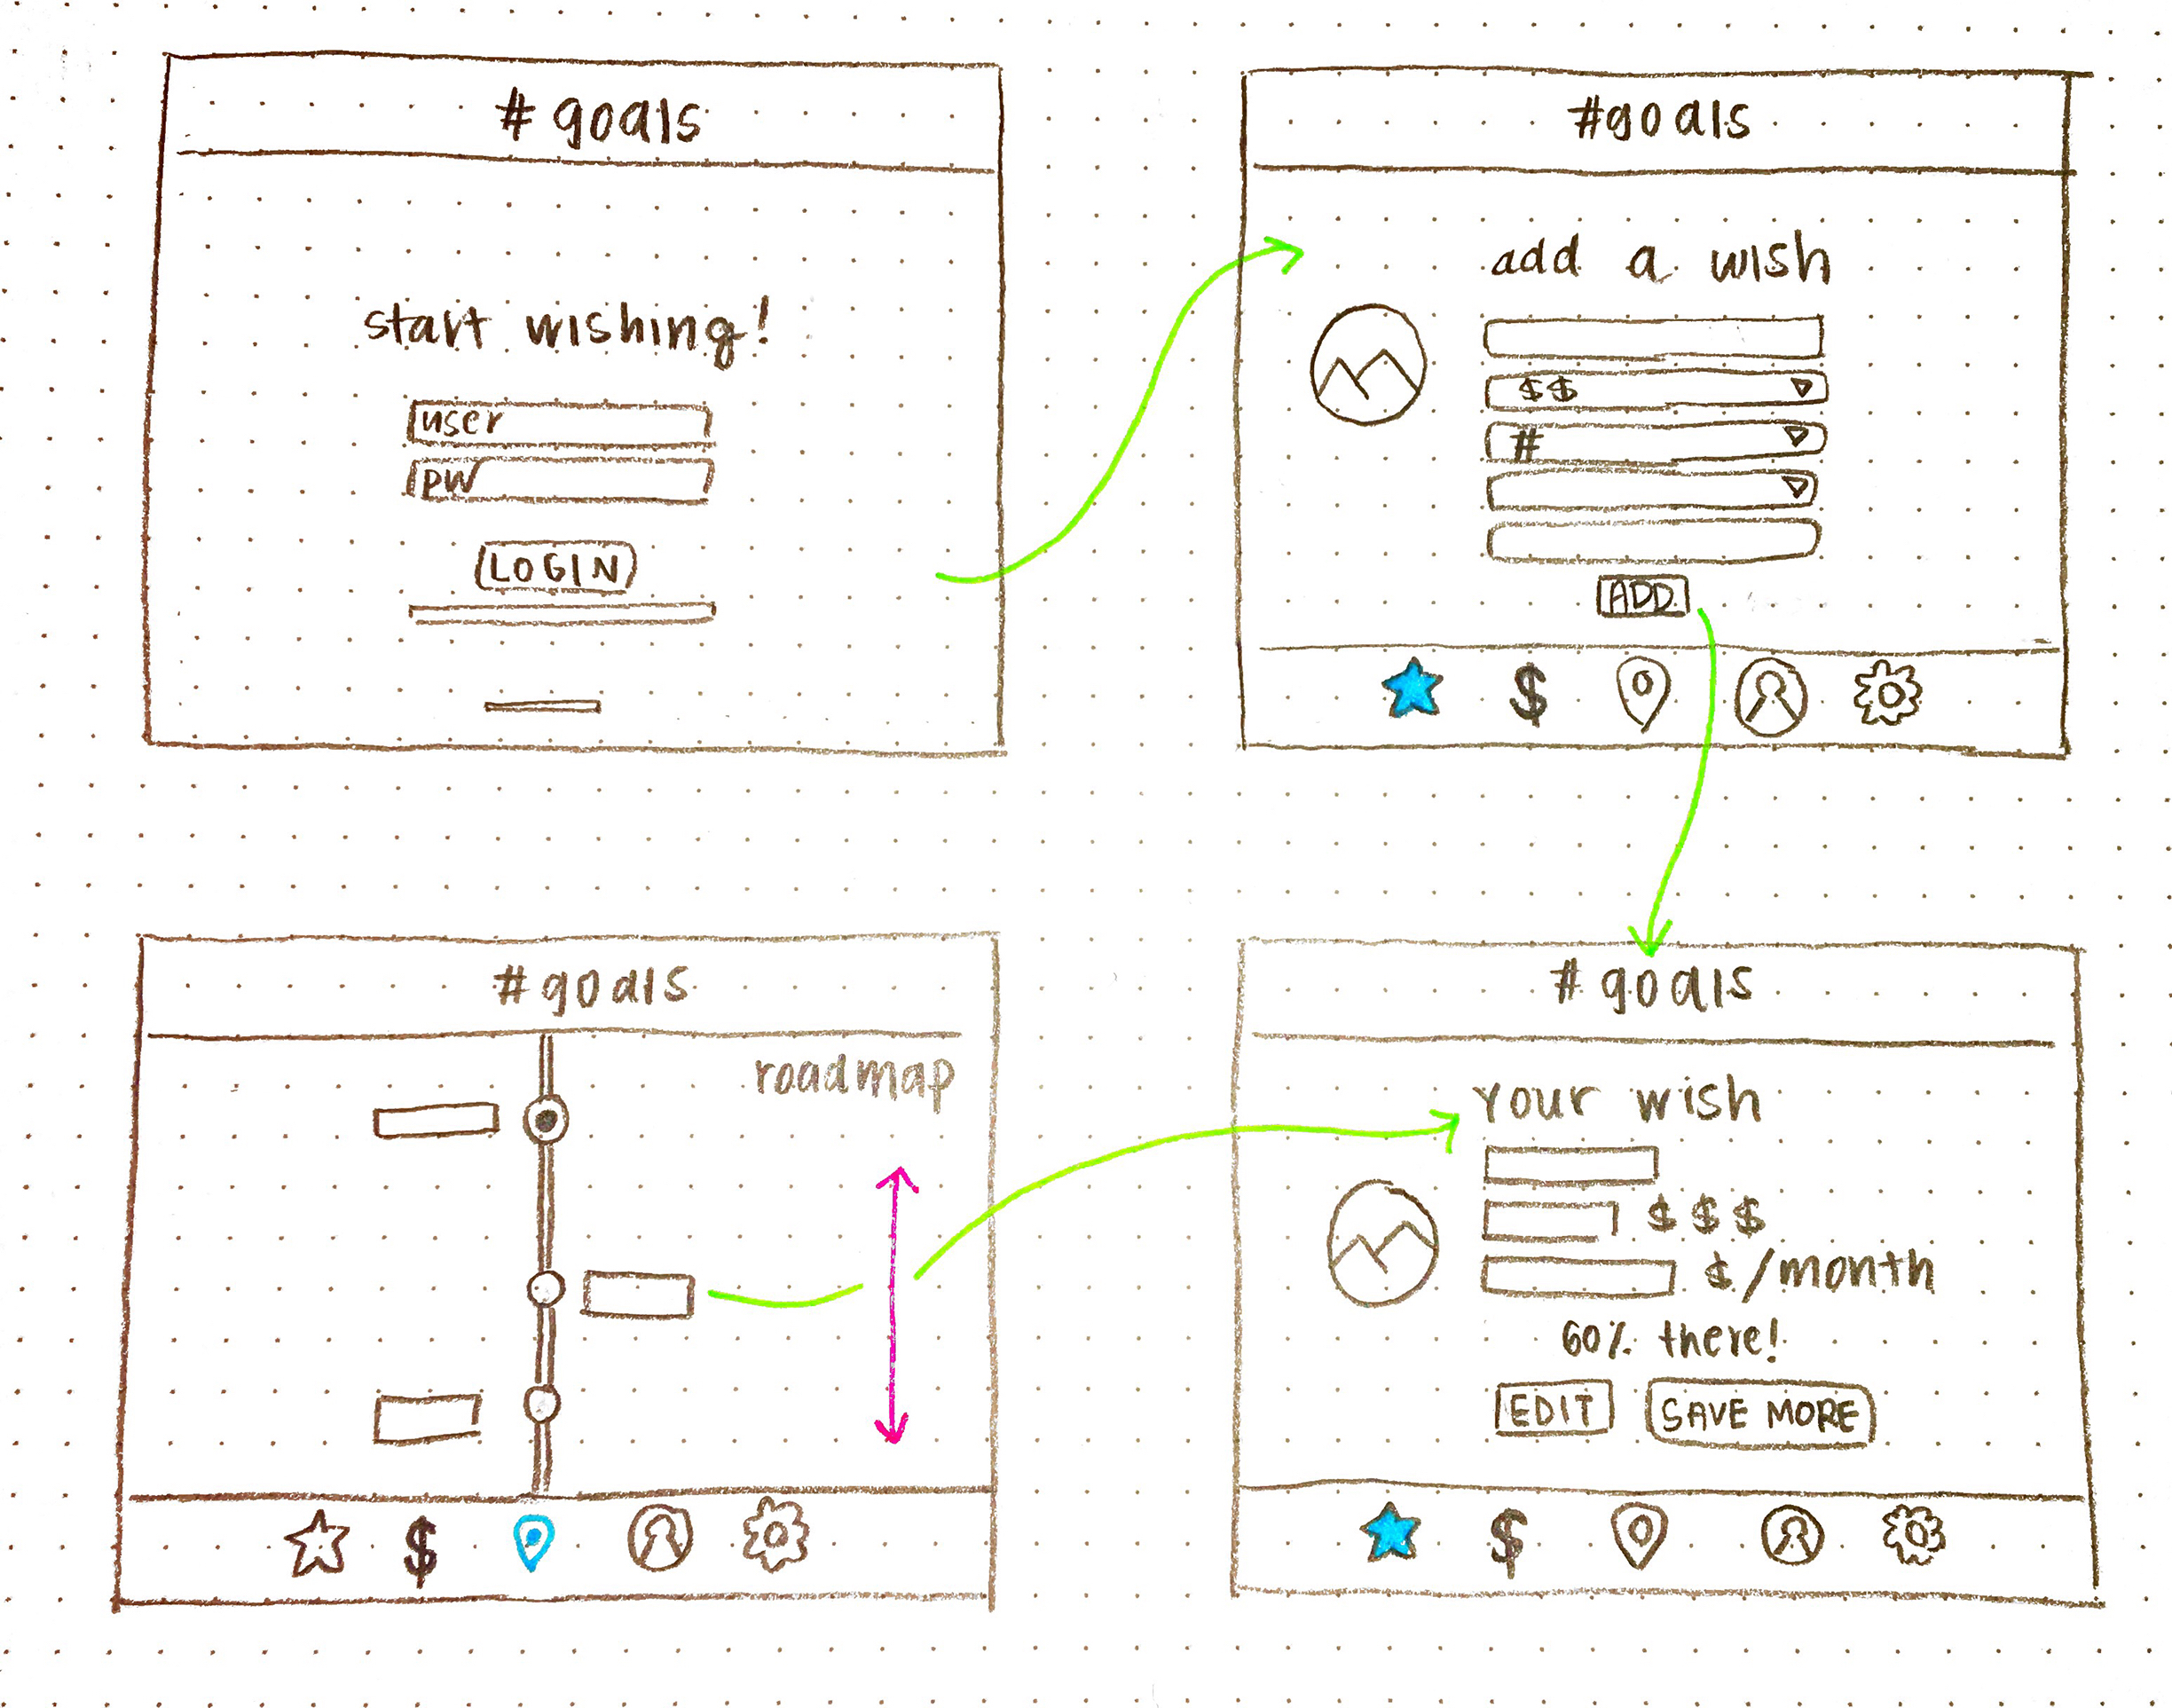 # goals
start wishing!
user
pw
LOGIN
#goals
add a wish
$$
#
ADD
$
# goals
roadmap
$
# goals
your wish
$ $ $
$/month
60% there!
EDIT
SAVE MORE
$